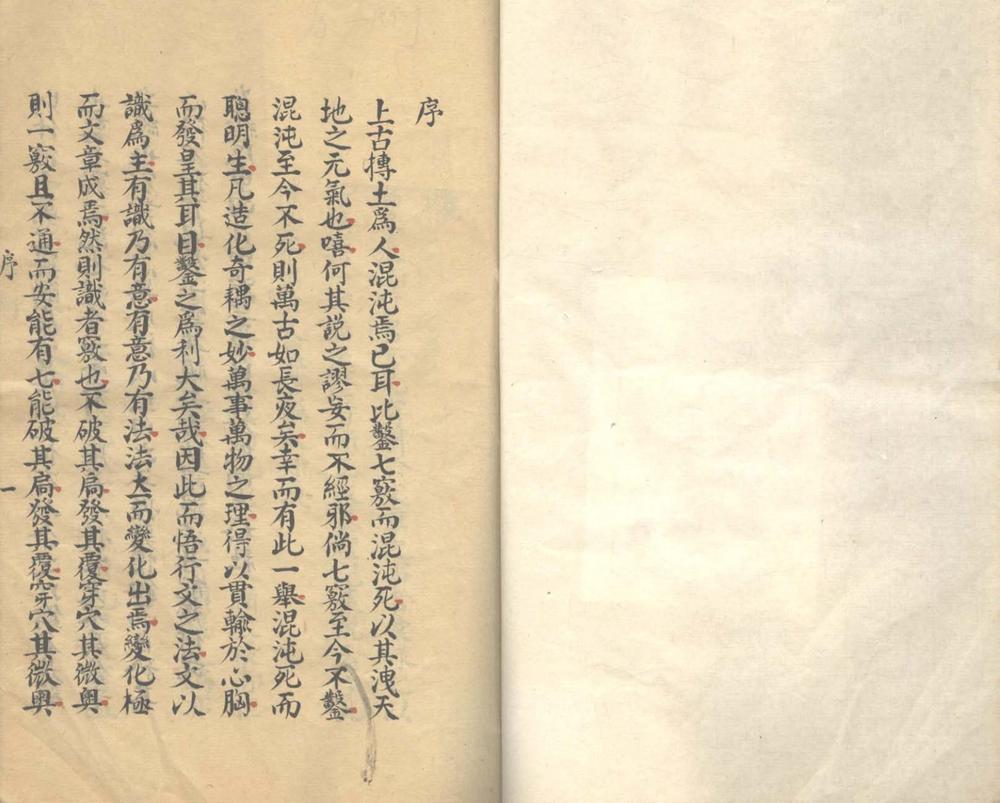 序
上古摶土爲人混沌焉已耳比鑿七竅而混沌死以其洩天
地之元氣也嘻何其說之謬妄而不經邪倘七竅至今不鑿
混沌至今不死則萬古如長夜矣幸而有此一舉混沌死而
聰明生凡造化奇耦之妙萬事萬物之理得以貫輸於心胸
而發皇其耳目鑿之爲利大矣哉因此而悟行文之法文以
識爲主有識乃有意有意乃有法法大而變化出焉變化極
而文章成焉然則識者竅也不破其扃發其覆穿穴其微奧
則一竅且不通而安能有七能破其扃發其覆穿穴其微奧
序
一